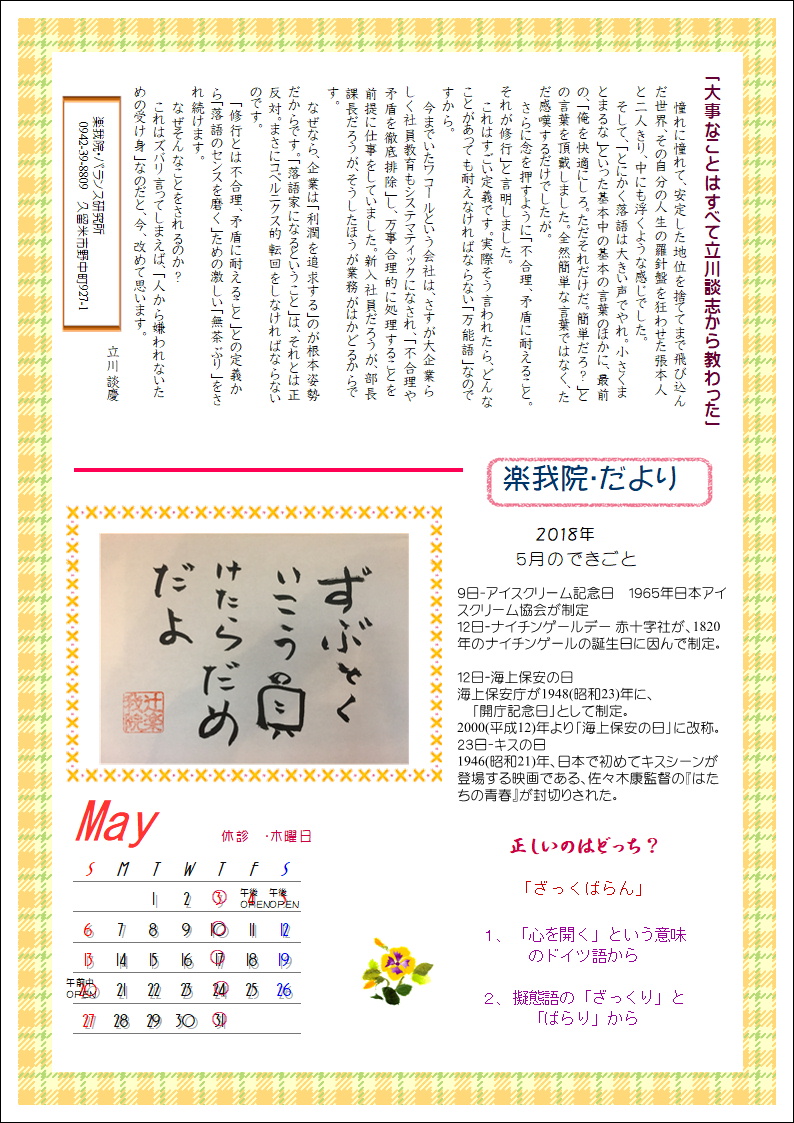 「大事なことはすべて立川談志から教わった」
憧れに憧れて、安定した地位を捨ててまで飛び込ん
だ世界、その自分の人生の羅針盤を狂わせた張本人
と二人きり、中にも浮くような感じでした。
そして、「とにかく落語は大きい声でやれ。小さくま
とまるな」といった基本中の基本の言葉のほかに、最前
の、「俺を快適にしろ。ただそれだけだ。簡単だろ？」と
の言葉を頂戴しました。全然簡単な言葉ではなく、た
だ感嘆するだけでしたが。
さらに念を押すように「不合理、矛盾に耐えること。
それが修行」と言明しました。
これはすごい定義です。実際そう言われたら、どんな
ことがあっても耐えなければならない「万能語」なので
すから。
今までいたワコールという会社は、さすが大企業ら
しく社員教育もシステマティックになされ、「不合理や
矛盾を徹底排除」し、万事合理的に処理することを
前提に仕事をしていました。新入社員だろうが、部長
課長だろうが、そうしたほうが業務がはかどるからで
す。
なぜなら、企業は「利潤を追求する」のが根本姿勢
だからです。「落語家になるということ」は、それとは正
反対。まさにコペルニクス的転回をしなければならない
のです。
「修行とは不合理、矛盾に耐えること」との定義か
ら「落語のセンスを磨く」ための激しい「無茶ぶり」をさ
れ続けます。
なぜそんなことをされるのか？
これはズバリ言ってしまえば、「人から嫌われないた
めの受け身」なのだと、今、改めて思います。
立川 談慶
楽我院・バランス研究所
0942-39-8809 久留米市野中町927-1
楽我院・だより
2018年
5月のできごと
9日-アイスクリーム記念日 1965年日本アイ
スクリーム協会が制定
12日-ナイチンゲールデー 赤十字社が、1820
年のナイチンゲールの誕生日に因んで制定。
12日-海上保安の日
海上保安庁が1948(昭和23)年に、
「開庁記念日」として制定。
2000(平成12)年より「海上保安の日」に改称。
23日-キスの日
1946(昭和21)年、日本で初めてキスシーンが
登場する映画である、佐々木康監督の『はた
ちの青春』が封切りされた。
ずぶとく
いこう
けたらだめ
だよ
辻楽
我院
May
休診 ・木曜日
S M T W T F S
午後 午後
1 2 3 4 5
OPEN OPEN
6 7 8 9 10 11 12
13 14 15 16 17 18 19
午前中
20 21 22 23 24 25 26
OPEN
27 28 29 30 31
正しいのはどっち？
「ざっくばらん」
１、「心を開く」という意味
のドイツ語から
２、擬態語の「ざっくり」と
「ばらり」から